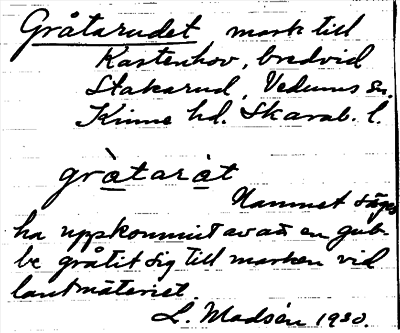 Gråtarudet mark till
Kartenhov, bredvid
Stakarud, Vedums sn.
Kinne hd. Skarab. l.
gràtaràt
Namnet säges
ha uppkommit av att en gub-
be gråtit sig till marken vid
lantmäteriet.
L. Madsén 1930.